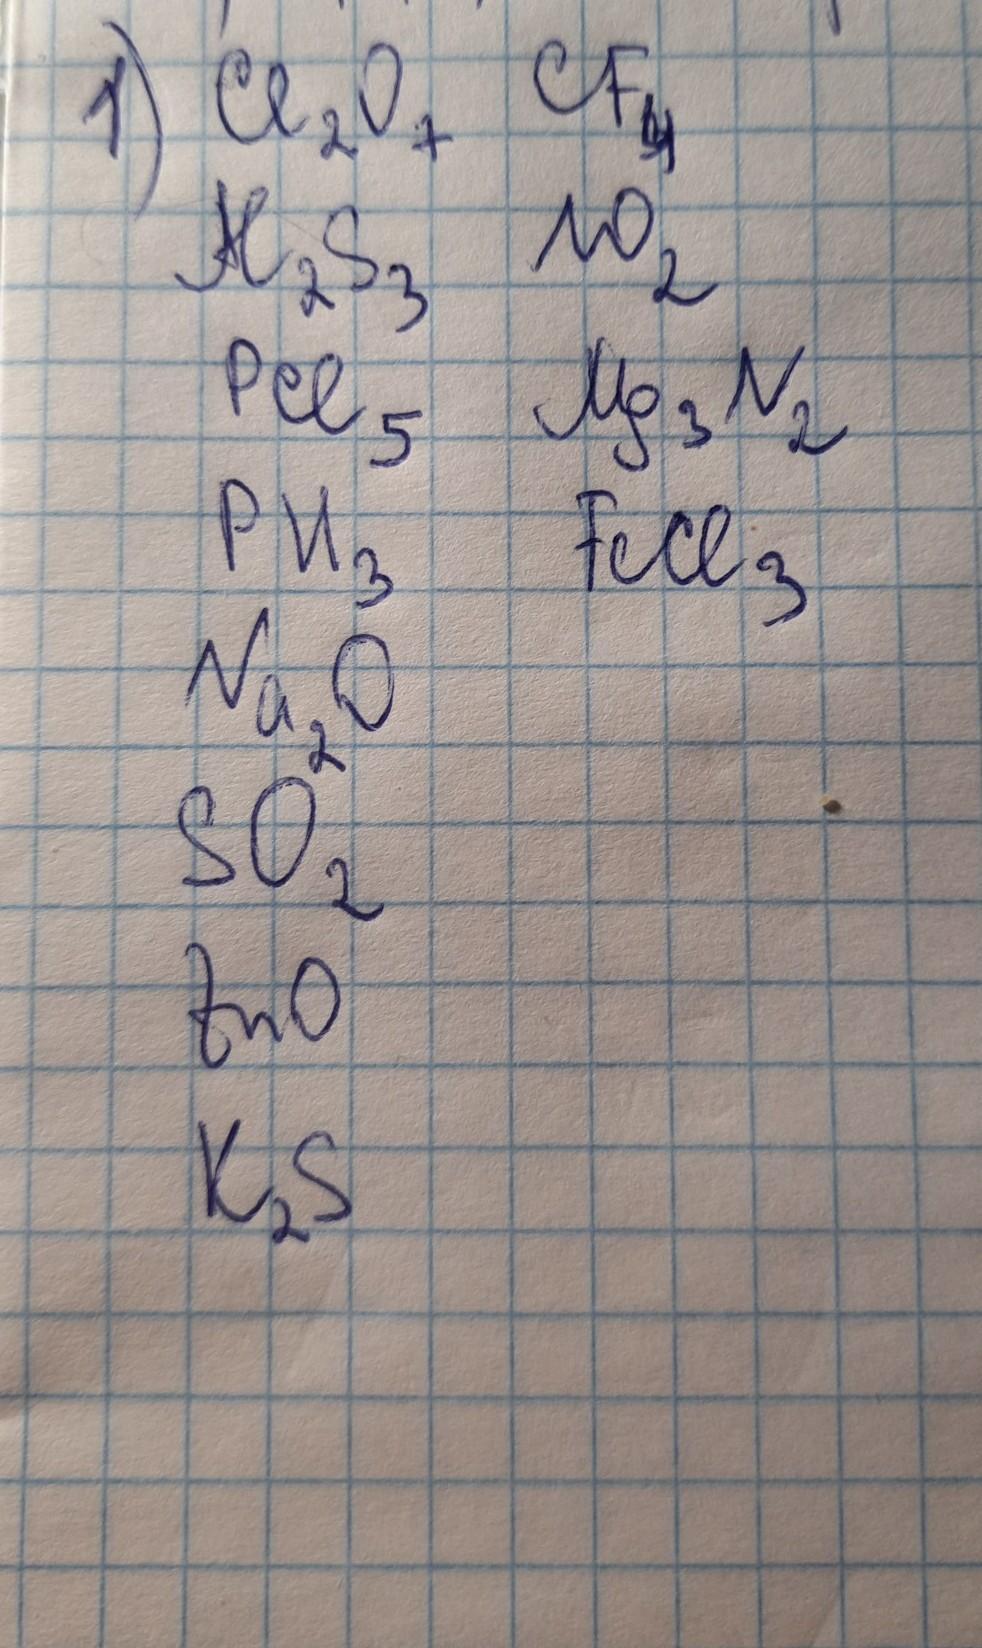 1) Cl₂O₇ CF₄
Al₂S₃ NO₂
PCl₅ Mg₃N₂
PH₃ FeCl₃
Na₂O
SO₂
ZnO
K₂S